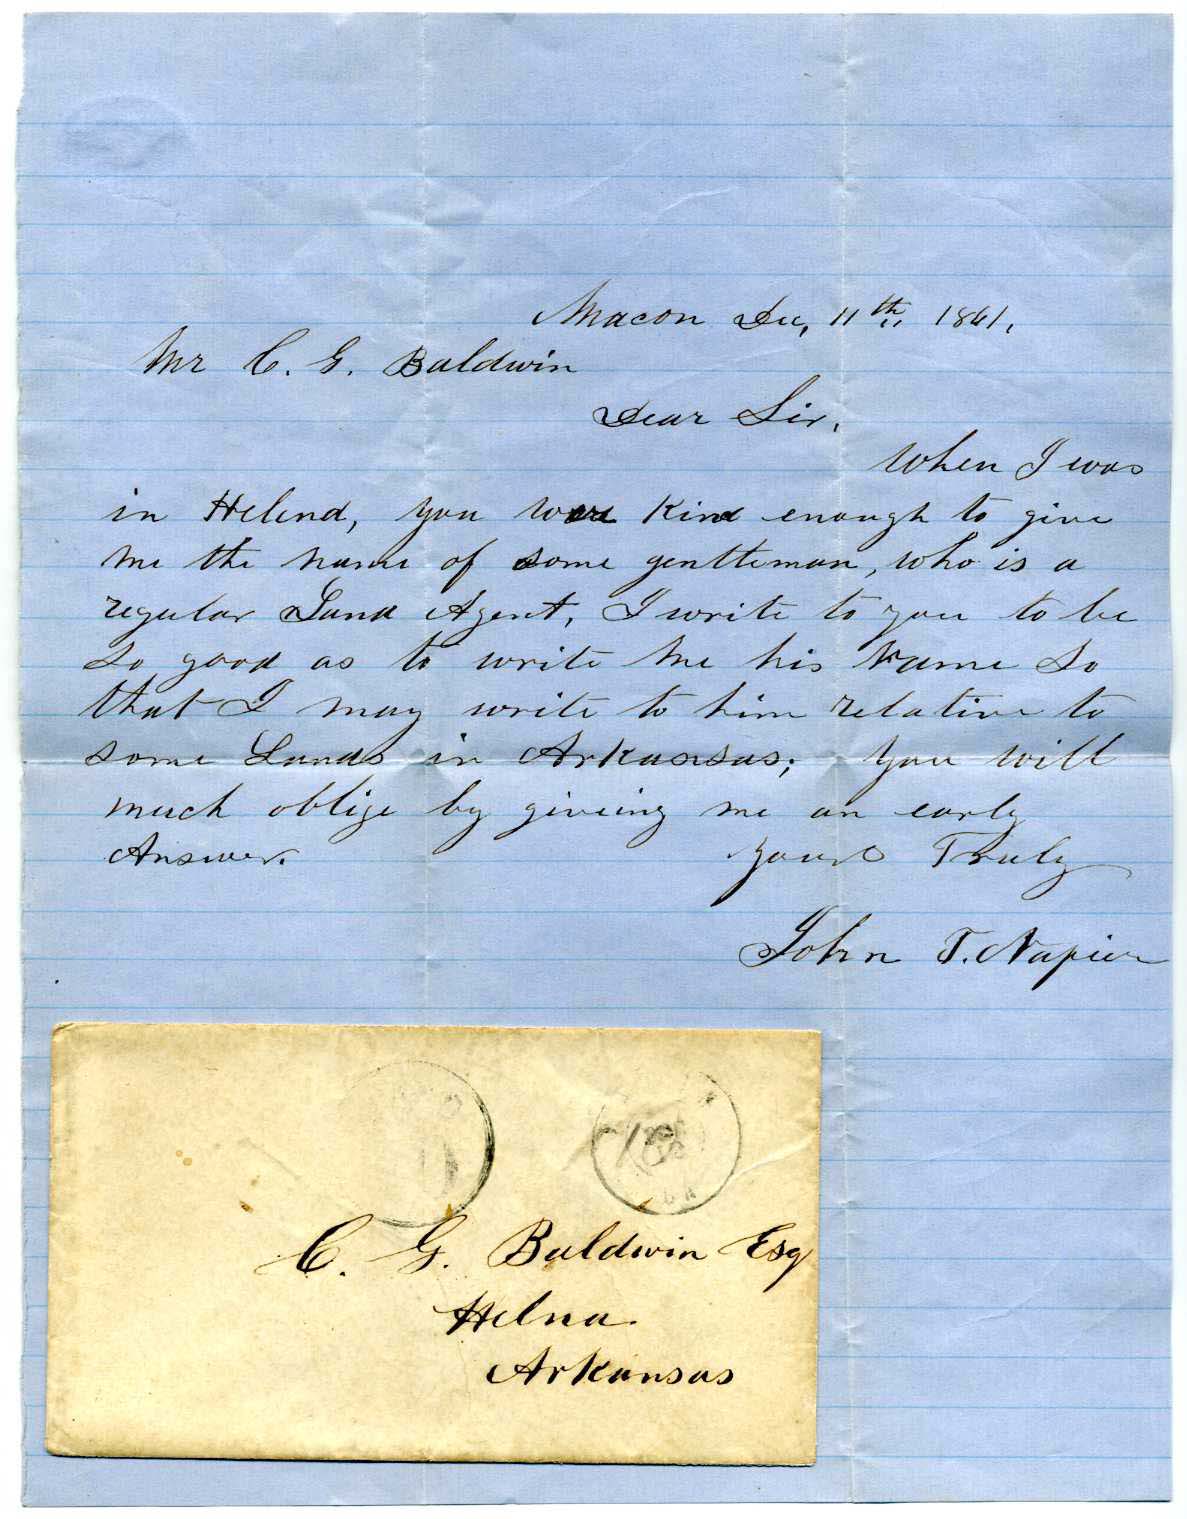 Macon Dec, 11th 1861,
Mr C. G. Baldwin
Dear Sir,
When I was
in Helena, you were kind enough to give
me the name of some gentteman, who is a
regular Land Agent, I write to you to be
so good as to write me his Name so
that I may write to him relative to
some Lands in Arkansas; you will
much oblige by giveing me an early
Answer. Yours Truly
John T. Napier
C. G. Baldwin Esq
Helna
Arkansas